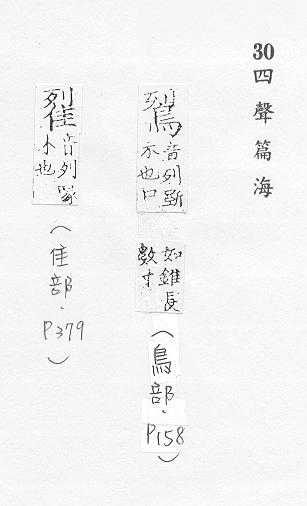 30四聲篇海
鴷
音列斲
木也口
如錐長
數寸
(鳥部.P158)
音列啄
木也
(隹部.P379)